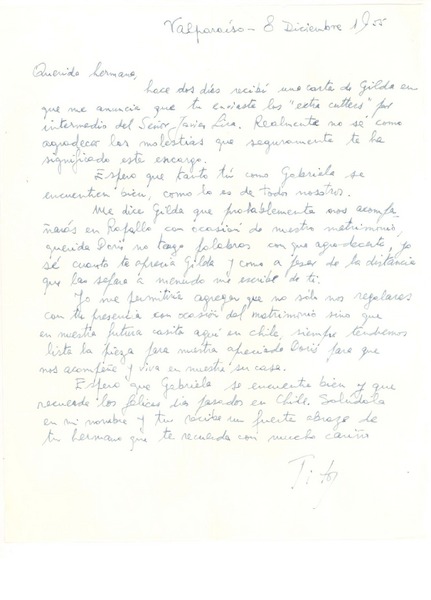 Valparaíso - 8 Diciembre 1955
Querida hermana,
hace dos días recibí una carta de Gilda en
que me anuncia que tu enviaste los "extra cutters" por
intermedio del Señor Javier. Realmente no sé como
agradecer las molestias que seguramente te ha
significado este encargo.
Espero que tanto tú como Gabriela se
encuentren bien, como lo es de todos nosotros.
Me dice Gilda que probablemente nos acompa-
ñarás en Rapallo con ocasión de nuestro matrimonio,
querida Doris no tengo palabras con que agradecerte, yo
sé cuanto te aprecia Gilda y como a pesar de la distancia
que las separa a menudo me escribe de ti.
Yo me permitiría agregar que no sólo nos regalares
con tu presencia con ocasión del matrimonio sino que
en nuestra futura casita aquí en Chile, siempre tendremos
lista la pieza para nuestra apreciada Doris para que
nos acompañe y viva en nuestra su casa.
Espero que Gabriela se encuentre bien y que
recuerde los felices días pasados en Chile. Salúdala
en mi nombre y tu recibe un fuerte abrazo de
tu hermano que te recuerda con mucho cariño
Tito